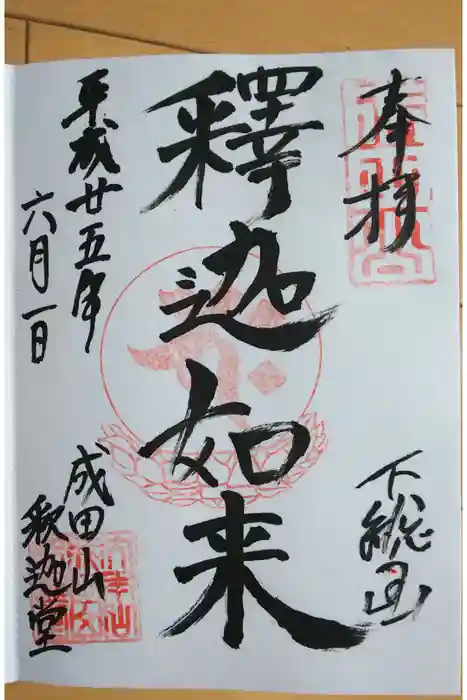 奉拝
下総国
釋迦如来
平成廿五年
六月一日
成田山
釈迦堂